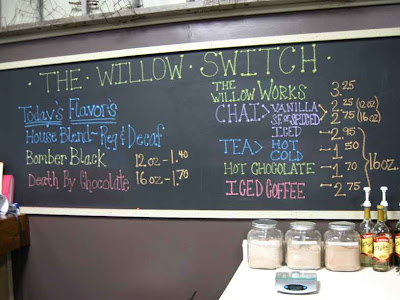 · THE · WILLOW · SWITCH ·
Today's Flavors
House Blend~Reg & Decaf
Bomber Black 12oz - 1.40
Death By Chocolate 16oz - 1.70
THE
WILLOW WORKS 3.25
CHAI> VANILLA 2.25 (12oz)
SF or SPICED 2.75 (16oz)
ICED 2.95
TEA> HOT 1.50
COLD
HOT CHOCOLATE 1.70
ICED COFFEE 2.75
16oz.